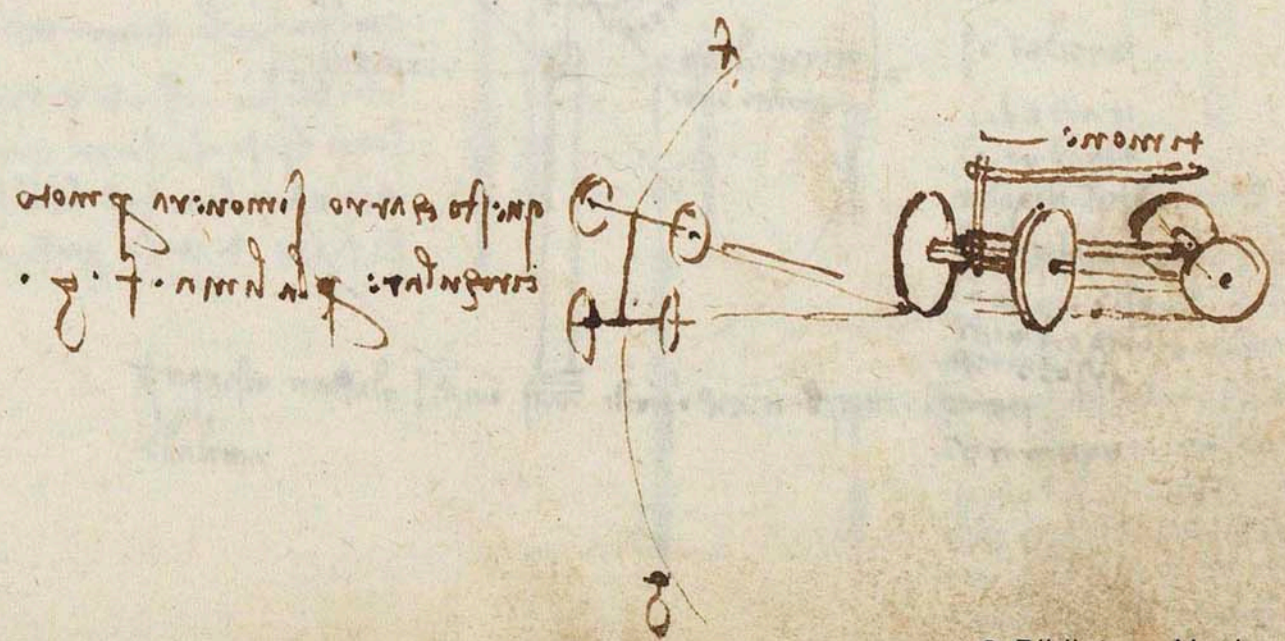 f
timone
questo carro simovera p moto
circulare p la linia . f . g .
g